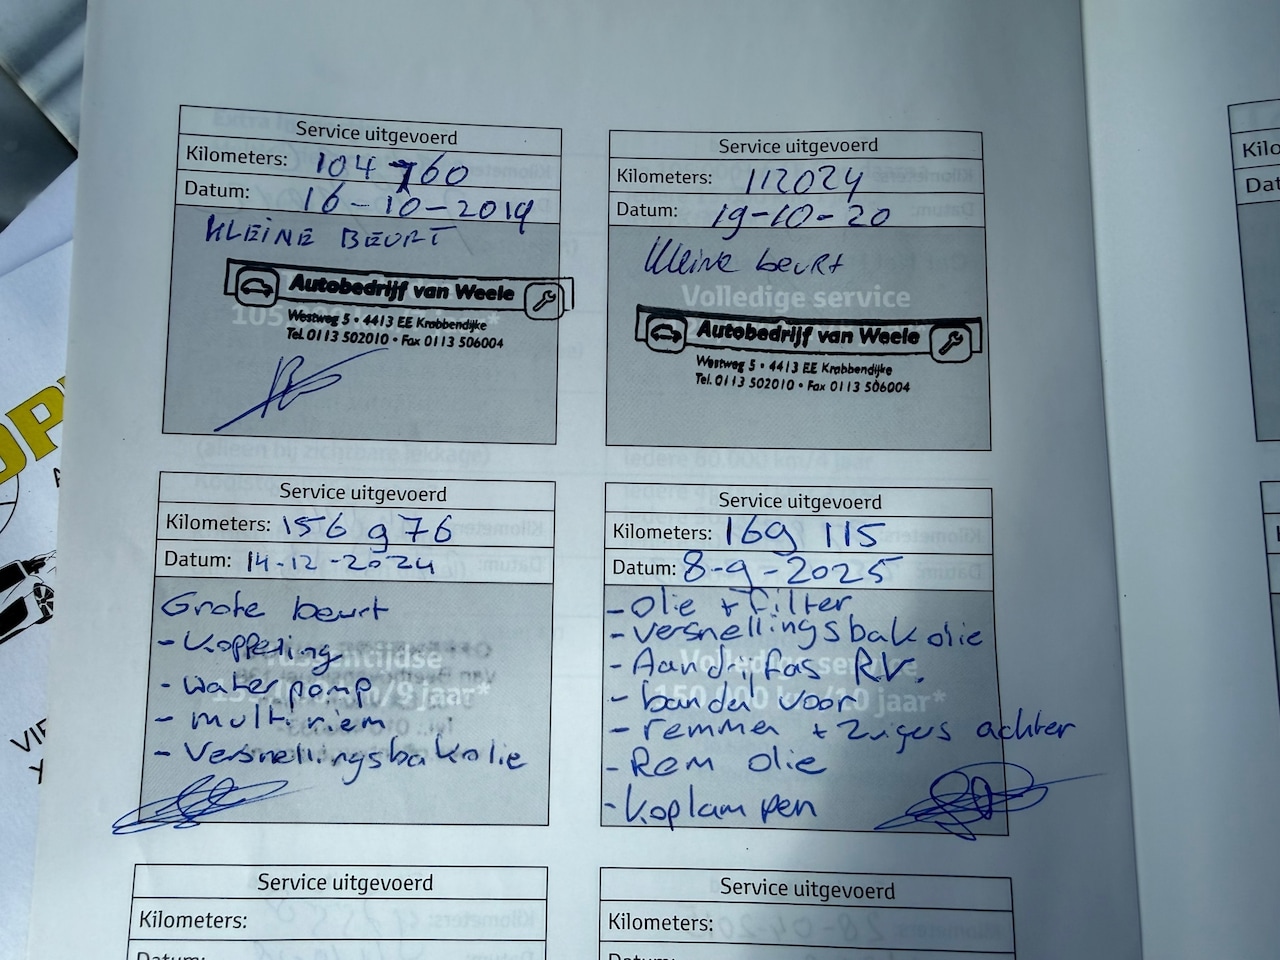 Service uitgevoerd
Kilometers: 104760
Datum: 16-10-2019
KLEINE BEURT
Autobedrijf van Weele
Westweg 5 • 4413 EE Krabbendijke
Tel. 0113 502010 • Fax 0113 506004
Service uitgevoerd
Kilometers: 112024
Datum: 19-10-20
Kleine beurt
Volledige service
Autobedrijf van Weele
Westweg 5 • 4413 EE Krabbendijke
Tel. 0113 502010 • Fax 0113 506004
Service uitgevoerd
Kilometers: 156 976
Datum: 14-12-2024
Grote beurt
- Koppeling
- Waterpomp
- multiriem
- Versnellingsbakolie
Service uitgevoerd
Kilometers: 169 115
Datum: 8-9-2025
- Olie + filter
- Versnellingsbakolie
- Aandrijfas R.V.
- banden voor
- remmen + zuigers achter
- Rem olie
- Koplampen
150.000 km/10 jaar*
Service uitgevoerd
Kilometers:
Datum:
Service uitgevoerd
Kilometers: